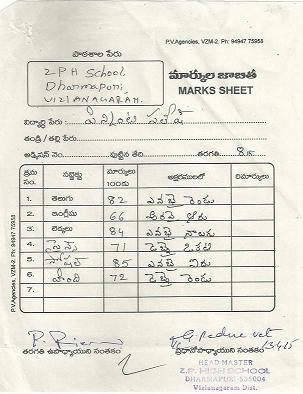 P.V.Agencies, VZM-2, Ph: 94947 75958
పాఠశాల పేరు
Z.P.H School
Dharmapuri
VIZIANAGARAM.
మార్కుల జాబితా
MARKS SHEET
విద్యార్థి పేరు:
తండ్రి / తల్లి పేరు
అడ్మిషన్ నెం. పుట్టిన తేది తరగతి 8
క్రమ సం. సబ్జెక్టు మార్కులు 100కు అక్షరములలో రిమార్కులు
1. తెలుగు 82 ఎనభై రెండు
2. ఇంగ్లీషు 66 అరవై ఆరు
3. లెక్కలు 84 ఎనభై నాలుగు
4. సైన్స్ 71 డెబ్భై ఒకటి
5. సోషల్ 85 ఎనభై ఐదు
6. హిందీ 72 డెబ్భై రెండు
7.
P.V.Agencies, VZM-2, Ph: 94947 75958
తరగతి ఉపాధ్యాయుని సంతకం ప్రధానోపాధ్యాయుని సంతకం
HEAD MASTER
Z.P. HIGH SCHOOL
DHARMAPURI-535004
Vizianagaram Dist.